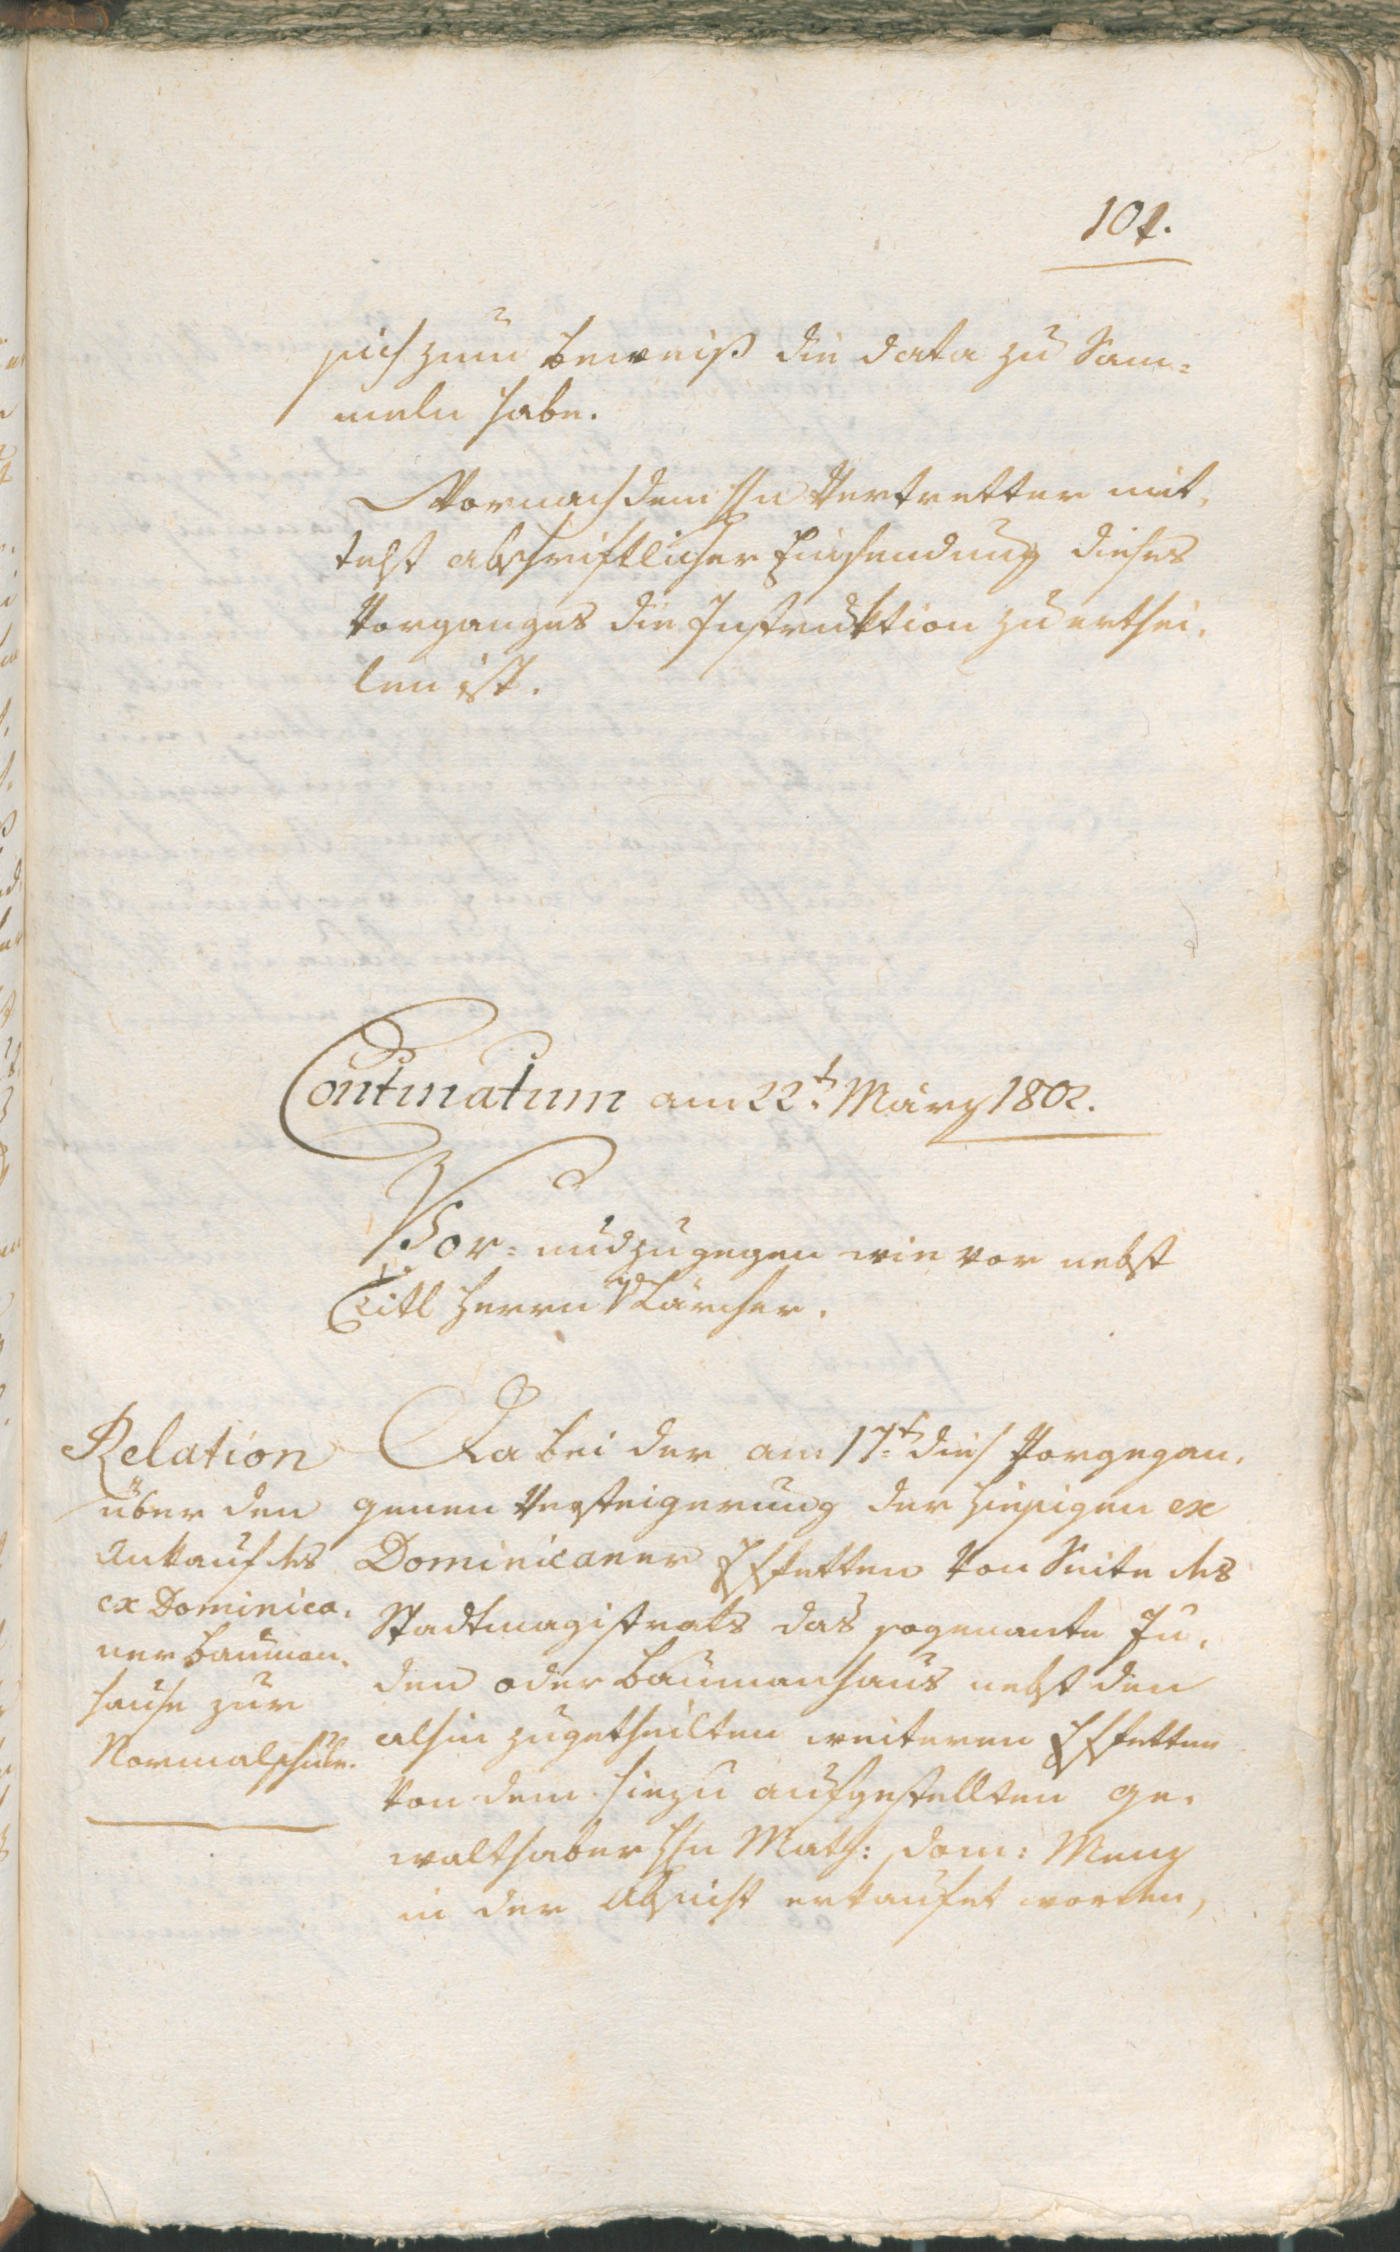 101.
sich zum beweiß die data zu Sam-
meln habe.
Wornach dem Hn Vertretter mit,
telst abschriftlicher Einsendung dieses
Vorganges die Instruktion zu erthei,
len ist.
Continatum am 22t. März 1802.
Vor- und zugegen wie vor nebst
Titl Herrn Kärcher.
Relation
über den
Ankauf des
ex Dominica,
ner bauman,
hause zur
Normalschule.
Da bei der am 17t. dies Vorgegan,
genen Versteigerung der hiesigen ex
Dominicaner Effetten von Seite des
Stadtmagistrats das sogenante Ju,
den oder baumanhaus nebst den
alhin zugetheilten weiteren Effetten
von dem hiezu aufgestellten ge,
walthaber Hn Math: Dom: Menz
in der Absicht erkaufet worden,